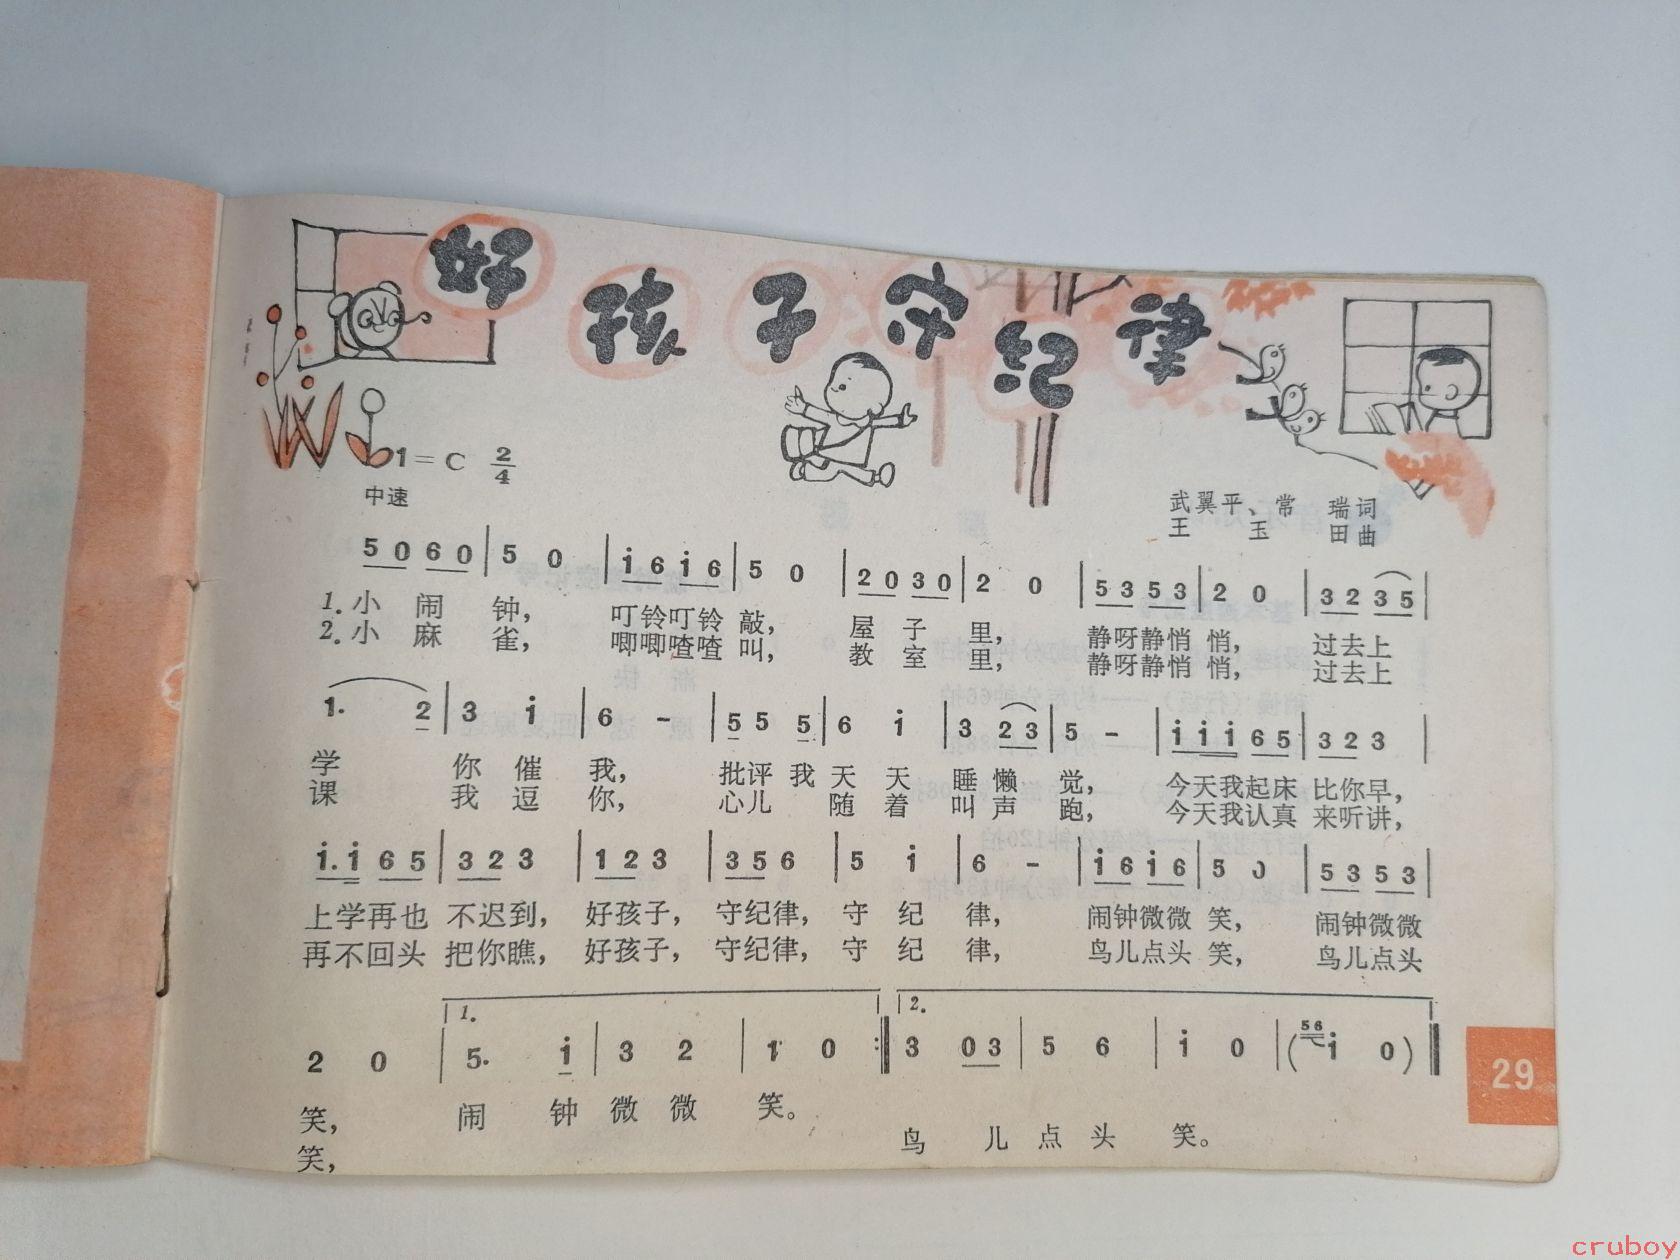 好孩子守纪律
1=C 2/4
中速
武翼平、常 瑞词
王 玉 田曲
5 0 6 0 | 5 0 | i 6 i 6 | 5 0 | 2 0 3 0 | 2 0 | 5 3 5 3 | 2 0 | 3 2 3 5 |
1.小 闹 钟， 叮铃叮铃 敲， 屋 子 里， 静呀静悄 悄， 过去上
2.小 麻 雀， 唧唧喳喳 叫， 教 室 里， 静呀静悄 悄， 过去上
1. 2 | 3 i | 6 - | 5 5 5 | 6 i | 3 2 3 | 5 - | i i i 6 5 | 3 2 3 |
学 你 催 我， 批评 我 天 天 睡 懒 觉， 今天我起床 比你早，
课 我 逗 你， 心儿 随 着 叫 声 跑， 今天我认真 来听讲，
i. i 6 5 | 3 2 3 | 1 2 3 | 3 5 6 | 5 i | 6 - | i 6 i 6 | 5 0 | 5 3 5 3 |
上学再也 不迟到， 好孩子， 守纪律， 守 纪 律， 闹钟微微 笑， 闹钟微微
再不回头 把你瞧， 好孩子， 守纪律， 守 纪 律， 鸟儿点头 笑， 鸟儿点头
1. 2.
2 0 | 5. i | 3 2 | 1 0 :| 3 0 3 | 5 6 | i 0 | ( 56 i 0 ) |
笑， 闹 钟 微 微 笑。
笑， 鸟 儿 点 头 笑。
29
cruboy